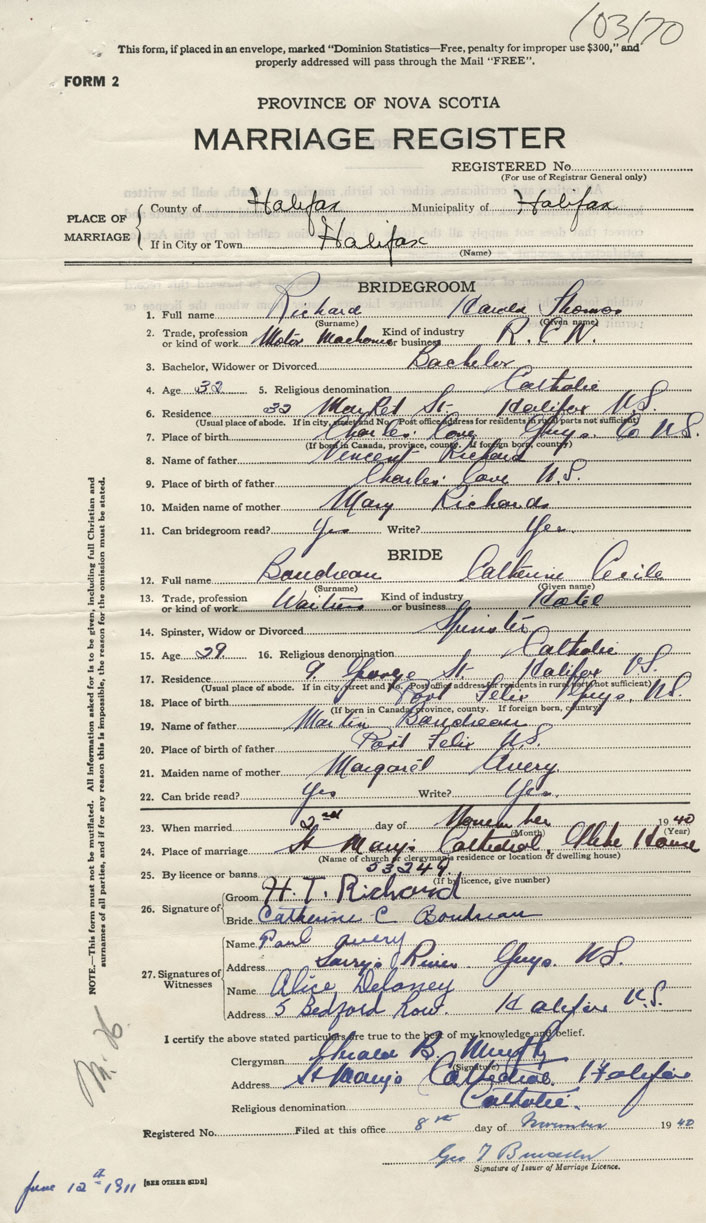 103170
This form, if placed in an envelope, marked "Dominion Statistics—Free, penalty for improper use $300," and
properly addressed will pass through the Mail "FREE".
FORM 2
PROVINCE OF NOVA SCOTIA
MARRIAGE REGISTER
REGISTERED No.
(For use of Registrar General only)
PLACE OF MARRIAGE
County of Halifax Municipality of Halifax
If in City or Town Halifax
(Name)
BRIDEGROOM
1. Full name Richard Thomas
(Surname) (Given name)
2. Trade, profession or kind of work Motor Kind of industry or business R.C.N.
3. Bachelor, Widower or Divorced Bachelor
4. Age 32 5. Religious denomination Catholic
6. Residence 32 Market St. Halifax N.S.
(Usual place of abode. If in city, street and No. Post office address for residents in rural parts not sufficient)
7. Place of birth Charles Cove Guys. Co N.S.
(If born in Canada, province, county. If foreign born, country)
8. Name of father Vincent Richard
9. Place of birth of father Charles Cove N.S.
10. Maiden name of mother Mary Richards
11. Can bridegroom read? Yes Write? Yes
BRIDE
12. Full name Boudreau Catherine Cecile
(Surname) (Given name)
13. Trade, profession or kind of work Waitress Kind of industry or business Hotel
14. Spinster, Widow or Divorced Spinster
15. Age 29 16. Religious denomination Catholic
17. Residence 9 George St. Halifax N.S.
(Usual place of abode. If in city, street and No. Post office address for residents in rural parts not sufficient)
18. Place of birth Port Felix Guys. N.S.
(If born in Canada, province, county. If foreign born, country)
19. Name of father Martin Boudreau
20. Place of birth of father Port Felix N.S.
21. Maiden name of mother Margaret Avery
22. Can bride read? Yes Write? Yes.
23. When married 2nd day of November 1940
(Month) (Year)
24. Place of marriage St Mary's Cathedral, Glebe House
(Name of church or clergyman's residence or location of dwelling house)
25. By licence or banns 53249
(If by licence, give number)
26. Signature of
Groom H. T. Richard
Bride Catherine C Boudreau
27. Signatures of Witnesses
Name Paul Avery
Address Larry's River Guys. N.S.
Name Alice Delaney
Address 5 Bedford Row. Halifax N.S.
I certify the above stated particulars are true to the best of my knowledge and belief.
Clergyman Gerald B. Murphy
(Signature)
Address St Mary's Cathedral Halifax
Religious denomination Catholic.
Registered No. Filed at this office 8th day of November 1940
Geo T
Signature of Issuer of Marriage Licence.
June 12th 1911
[SEE OTHER SIDE]
NOTE.—This form must not be mutilated. All information asked for is to be given, including full Christian and
surnames of all parties, and if for any reason this is impossible, the reason for the omission must be stated.